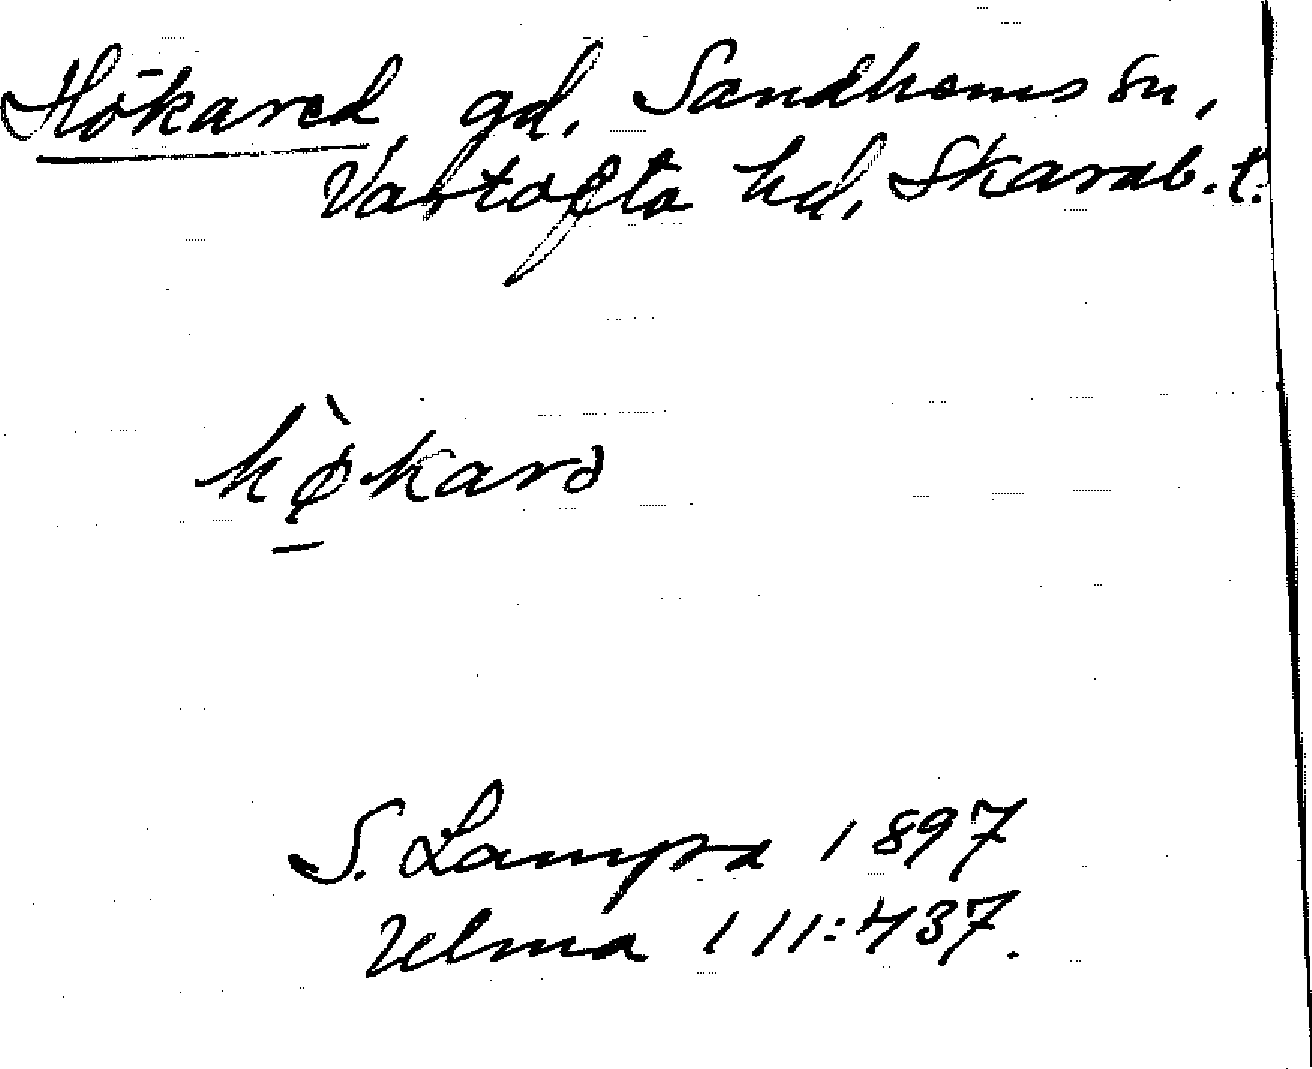 Hökared gd, Sandhems sn,
Vartofta hd, Skarab. l.
hø̀karə
S. Lampa 1897
Ulma 111:437.